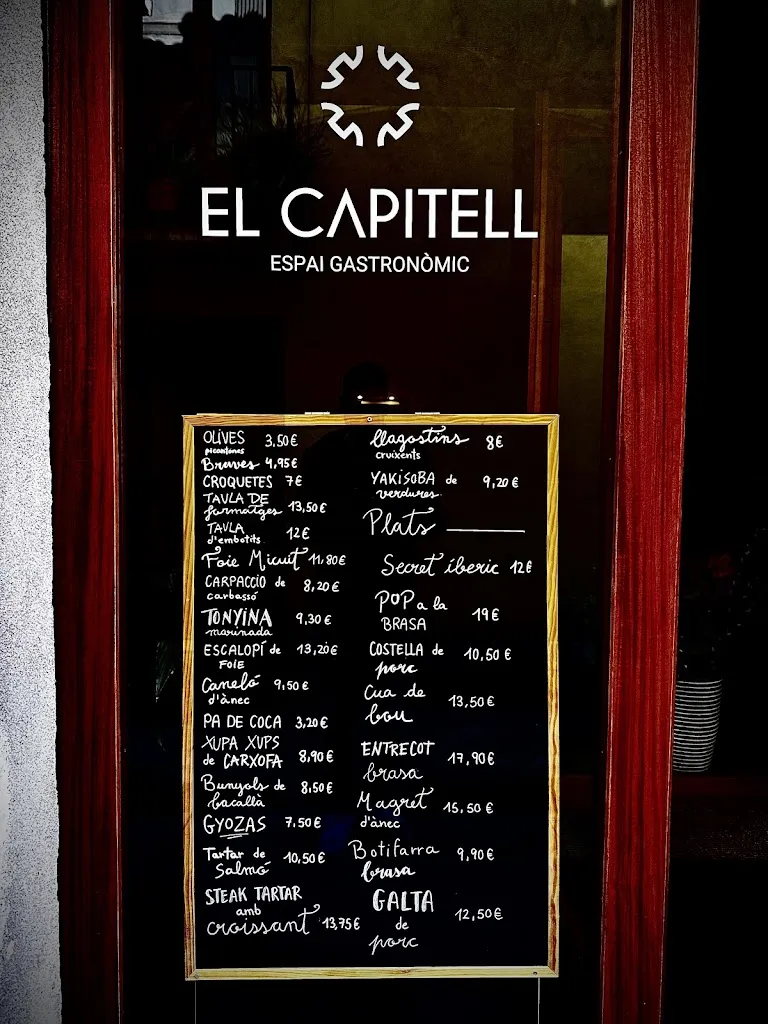 EL CAPITELL
ESPAI GASTRONÒMIC
OLIVES 3,50€
picantones
Braves 4,95€
CROQUETES 7€
TAULA DE
formatges 13,50€
TAULA
d'embotits 12€
Foie Micuit 11,80€
CARPACCIO de
carbassó 8,20€
TONYINA
marinada 9,30€
ESCALOPÍ de
FOIE 13,20€
Caneló
d'ànec 9,50€
PA DE COCA 3,20€
XUPA XUPS
de CARXOFA 8,90€
Bunyols de
bacallà 8,50€
GYOZAS 7,50€
Tartar de
Salmó 10,50€
STEAK TARTAR
amb
croissant 13,75€
llagostins 8€
cruixents
YAKISOBA de
verdures 9,20€
Plats
Secret íberic 12€
POP a la
BRASA 19€
COSTELLA de
porc 10,50€
Cua de
bou 13,50€
ENTRECOT
brasa 17,90€
Magret
d'ànec 15,50€
Botifarra
brasa 9,90€
GALTA
de
porc 12,50€